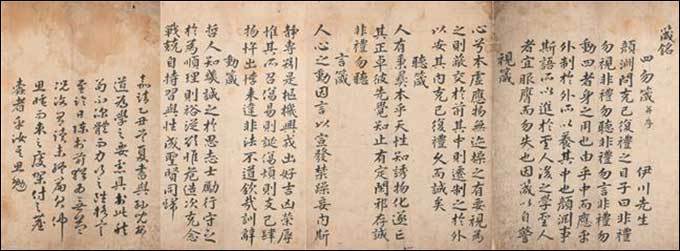 箴銘
四勿箴 并序 伊川先生
顔淵問克己復禮之目子曰非禮
勿視非禮勿聽非禮勿言非禮勿
動四者身之用也由乎中而應乎
外制於外所以養其中也顔淵事
斯語所以進於聖人後之學聖人
者宜服膺而勿失也因箴以自警
視箴
心兮本虛應物無迹操之有要視爲
之則蔽交於前其中則遷制之於外
以安其內克己復禮久而誠矣
聽箴
人有秉彝本乎天性知誘物化遂亡
其正卓彼先覺知止有定閑邪存誠
非禮勿聽
言箴
人心之動因言以宣發禁躁妄內斯
靜專矧是樞機興戎出好吉凶榮辱
惟其所召傷易則誕傷煩則支己肆
物忤出悖來違非法不道欽哉訓辭
動箴
哲人知幾誠之於思志士勵行守之
於爲順理則裕從欲惟危造次克念
戰兢自持習與性成聖賢同歸
嘉靖乙丑夏書與孫兒安
道爲學之要